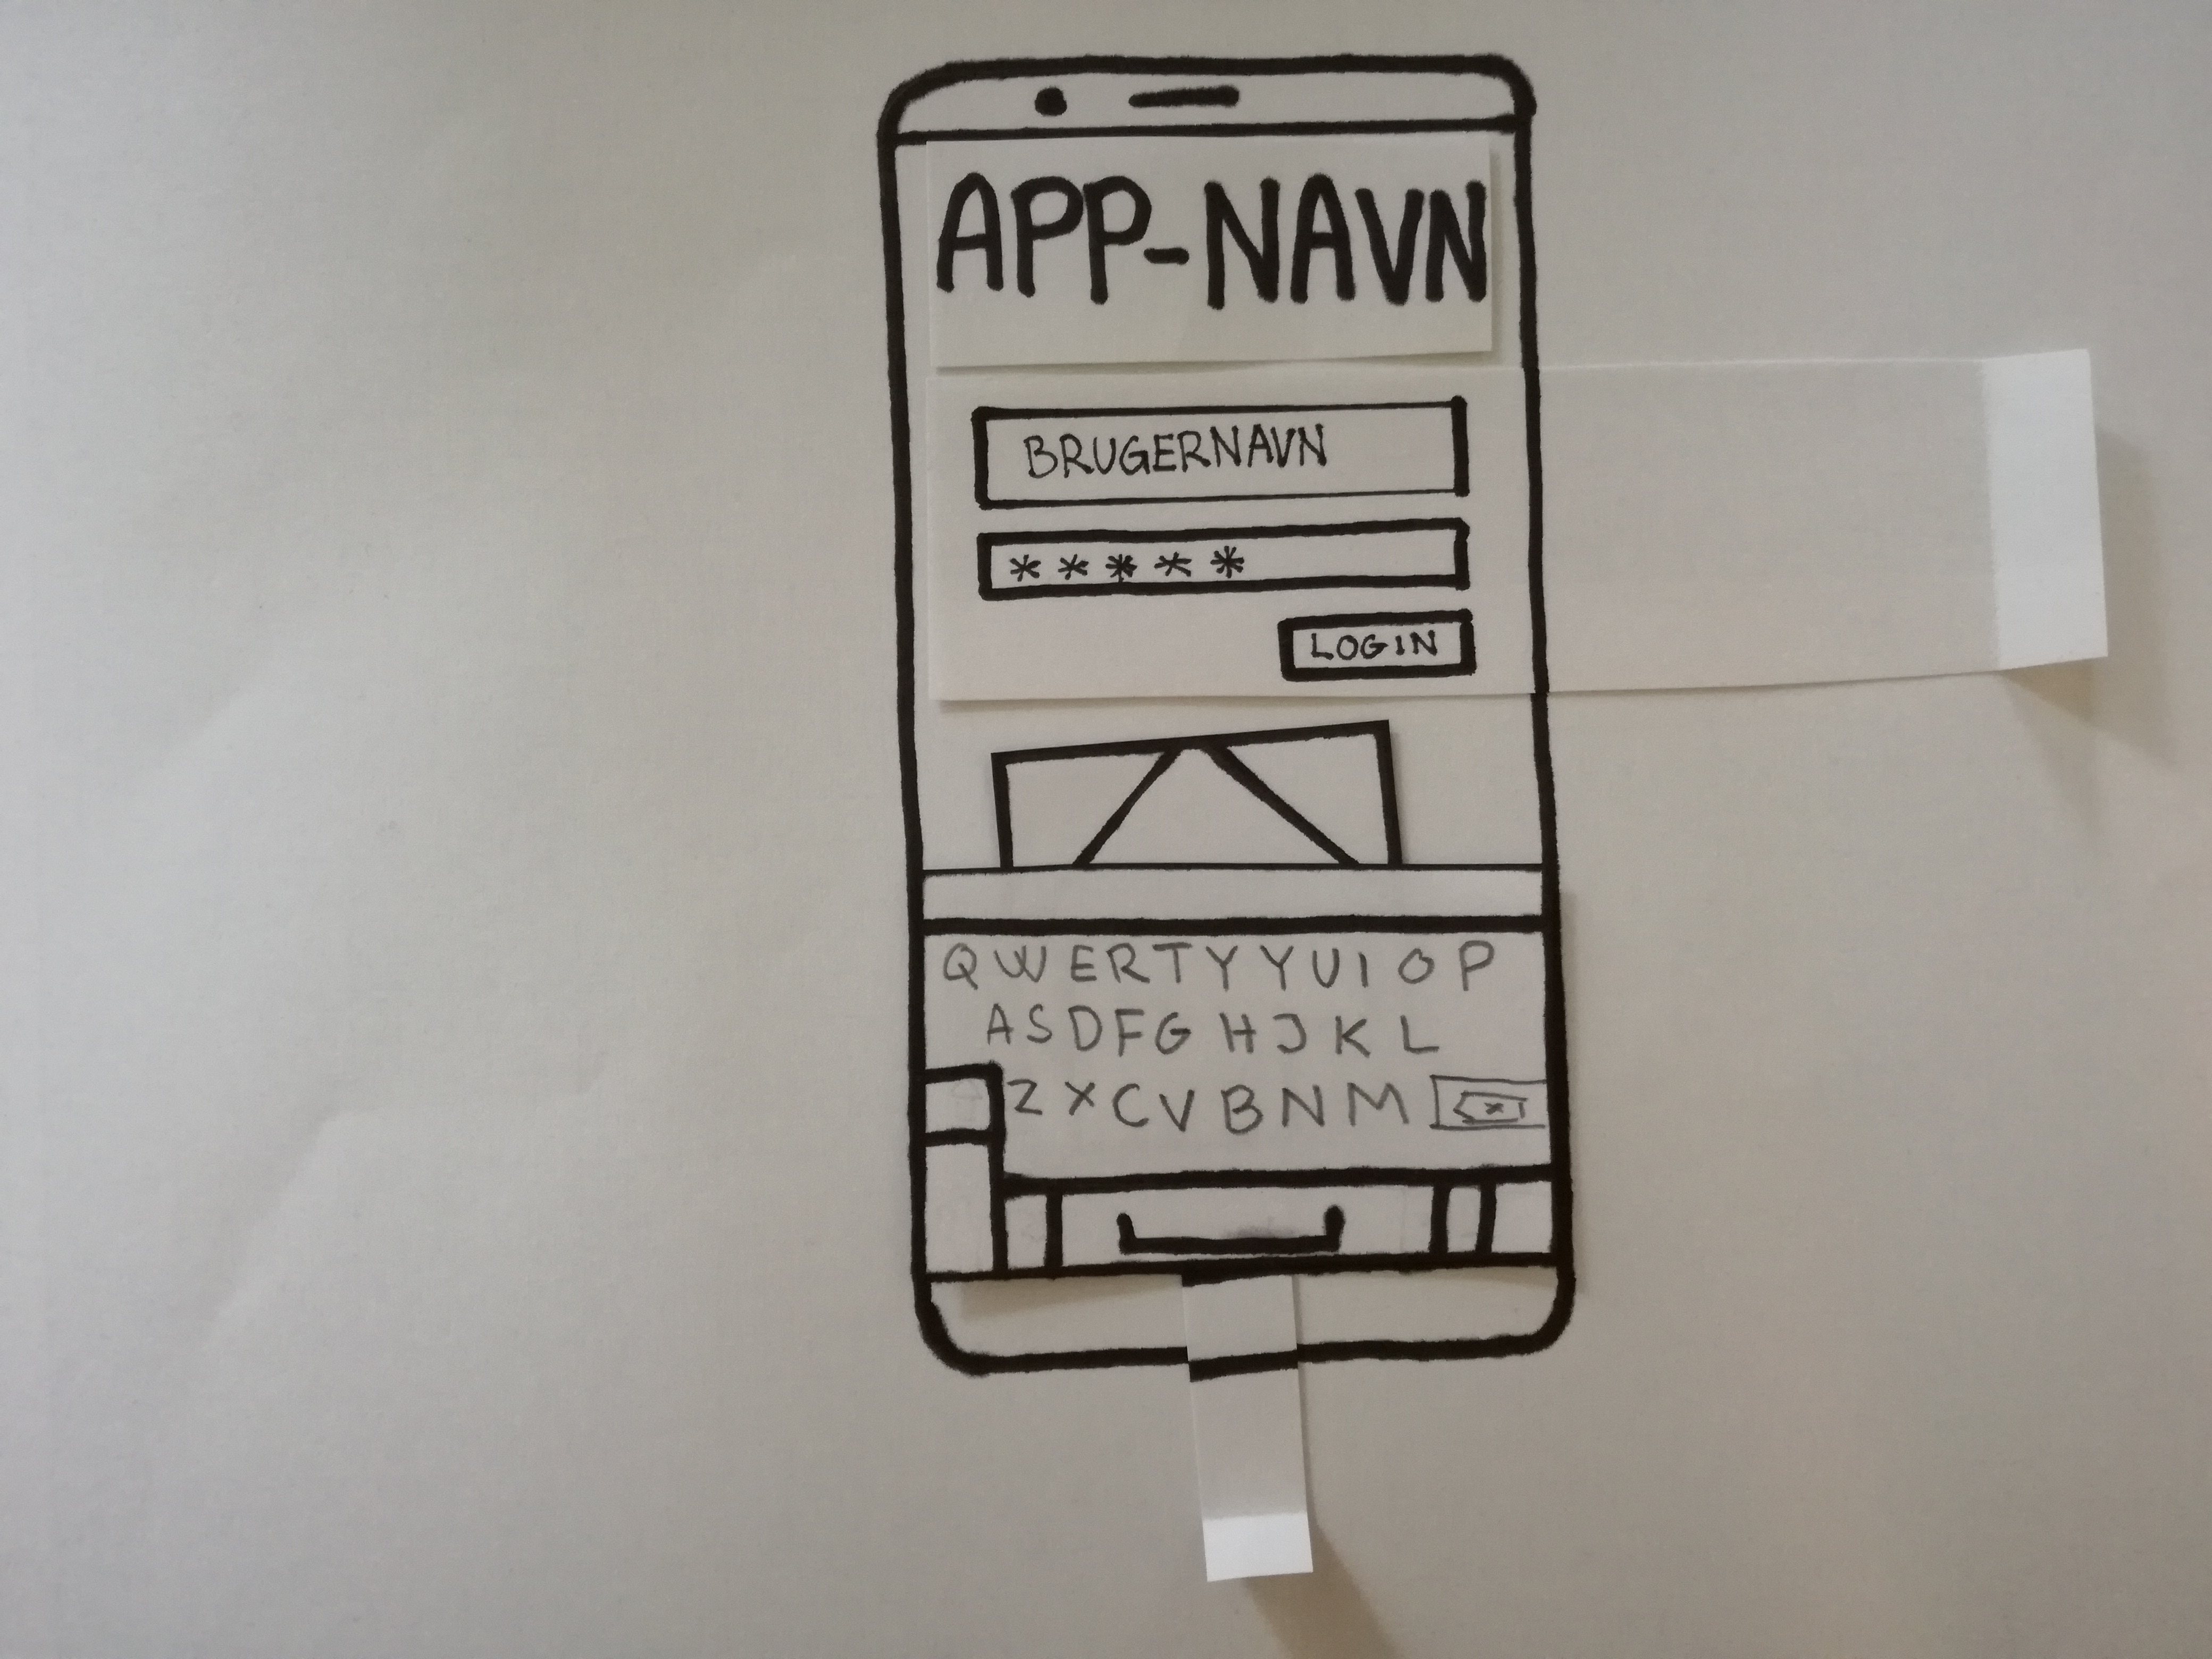 APP-NAVN
BRUGERNAVN
*****
LOGIN
QWERTYYUIOP
ASDFGHJKL
ZXCVBNM